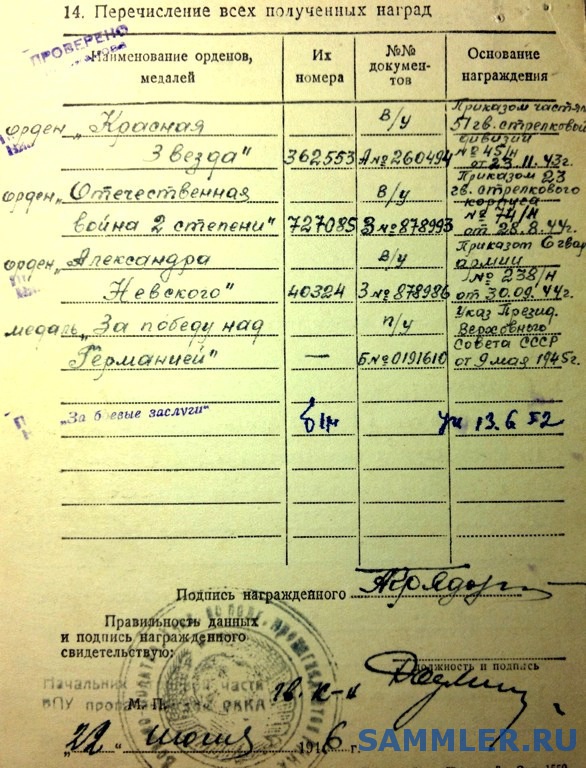 14. Перечисление всех полученных наград
ПРОВЕРЕНО
Наименование орденов, медалей
Их номера
№№ документов
Основание награждения
орден „Красная Звезда" 362553 В/у А№260494 Приказом частям 51 гв. стрелковой дивизии №45/н от 23.11.43г.
орден „Отечественная война 2 степени" 727085 В/у З№878993 Приказом 23 гв. стрелкового корпуса №74/н от 28.8.44г.
орден „Александра Невского" 40324 В/у З№878986 Приказом 6 гвар армии №238/н от 30.09.44г.
медаль „За победу над Германией" — п/у Б№0191610 Указ Презид. Верховного Совета СССР от 9 мая 1945г.
„За боевые заслуги" б/н ук 13.6.52
Подпись награжденного
Правильность данных
и подпись награжденного
свидетельствую:
должность и подпись
Начальник части
М. П.
РККА
„22" июня 1946 г.
SAMMLER.RU